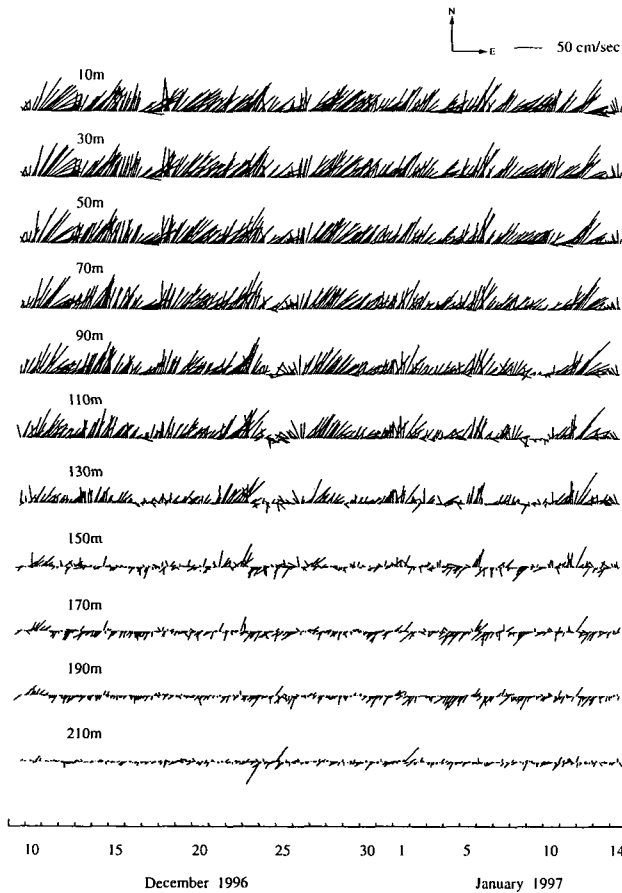 N
E
50 cm/sec
10m
30m
50m
70m
90m
110m
130m
150m
170m
190m
210m
10 15 20 25 30 1 5 10 14
December 1996 January 1997